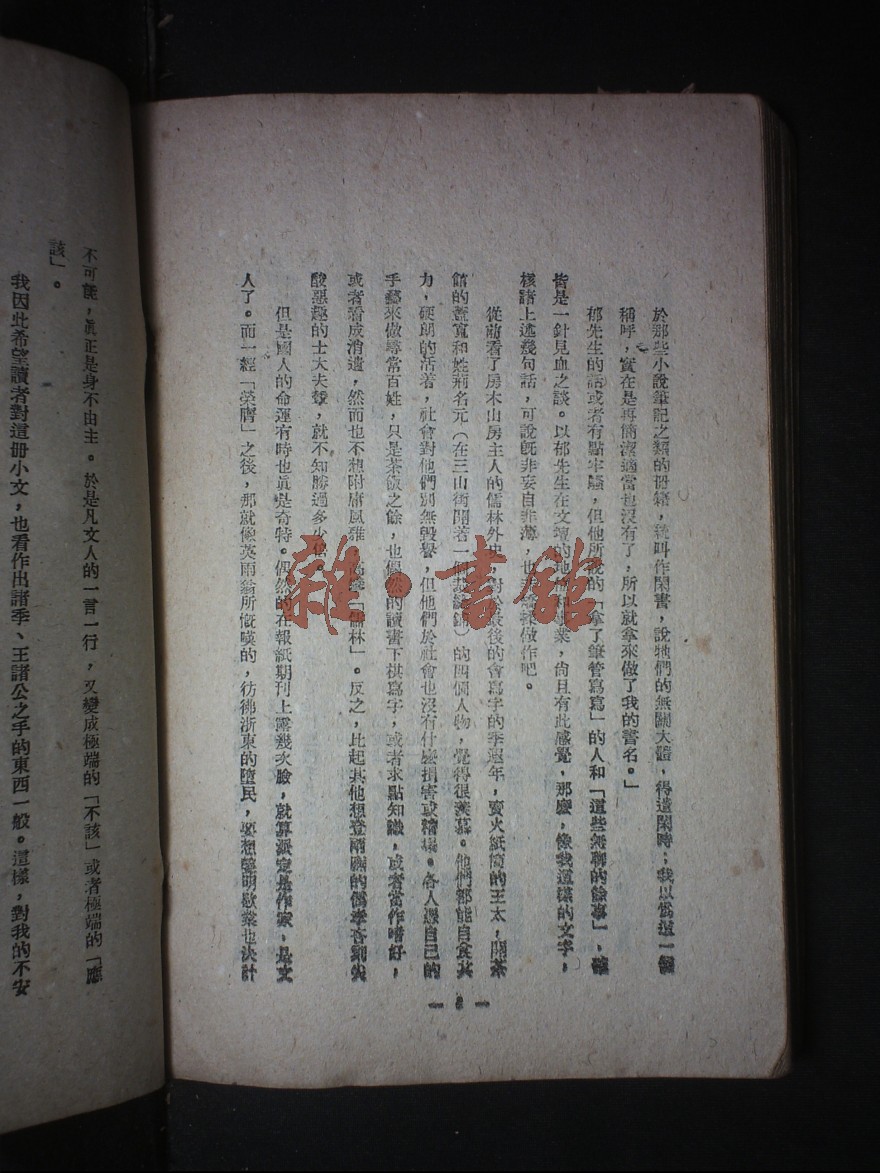 於那些小說筆記之類的冊籍，統叫作閑書，說牠們的無關大體，得遣閑時；我以爲這一個
稱呼，實在是再簡潔適當也沒有了，所以就拿來做了我的書名。」
郁先生的話或者有點牢騷，但他所說的「拿了筆管寫寫」的人和「這些無聊的餘事」，確
皆是一針見血之談。以郁先生在文壇的地位和專業，尚且有此感覺，那麼，像我這樣的文字，
核諸上述幾句話，可說旣非妄自菲薄，也非故作吧。
從前看了房木山房主人的儒林外史，對於最後的會寫字的季遐年，賣火紙筒的王太，開茶
館的蓋寬和姓荊名元（在三山街開着一個裁縫鋪）的四個人物，覺得很羨慕。他們都能自食其
力，硬朗的活着，社會對他們別無毀譽，但他們於社會也沒有什麼損害或糟塲。各人憑自己的
手藝來做尋常百姓，只是茶飯之餘，也偶然的讀書下祺寫字，或者求點知識，或者當作嗜好，
或者看成消遣，然而也不想附庸風雅，高攀「儒林」。反之，比起其他想登兩廡的儒
酸惡趣的士大夫輩，就不知勝過多少倍。
但是國人的命運有時也眞是奇特。偶然的在報紙期刊上露幾次臉，就算派定是作家，是文
人了。而一經「榮膺」之後，那就像英雨翁所慨嘆的，彷彿浙東的墮民，要想蓬明歇業也決計
雜·書館
不可能，眞正是身不由主。於是凡文人的一言一行，又變成極端的「不該」或者極端的「應
該」。
我因此希望讀者對這冊小文，也看作出諸季、王諸公之手的東西一般。這樣，對我的不安